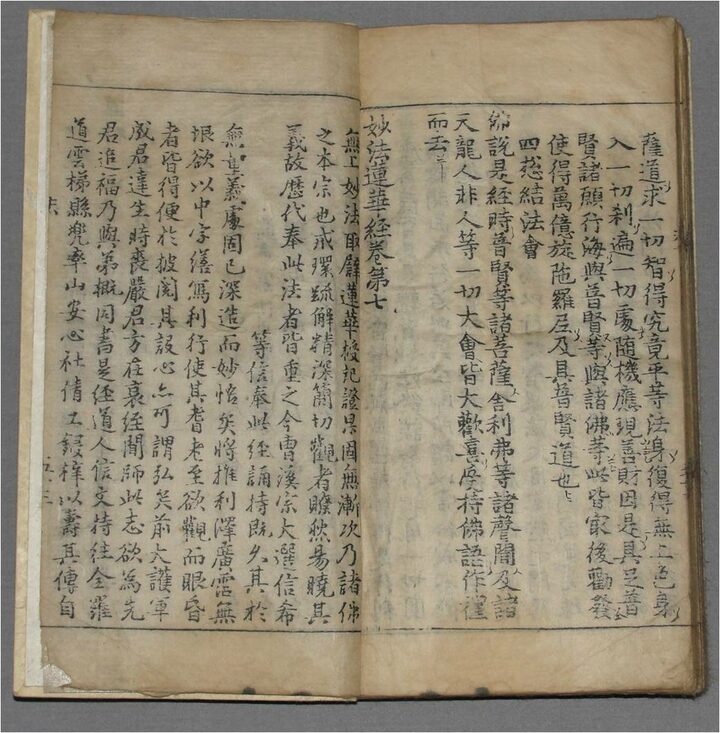 薩道求一切智得究竟平等法身復得無上色身
入一切刹遍一切處随機應現善財因是具足普
賢諸願行海與普賢等與諸佛等此皆㝡後勸發
使得萬億旋陁羅尼及具普賢道也
四緫結法會
佛說是經時普賢等諸菩薩舎利佛等諸聲聞及諸
天龍人非人等一切大會皆大歡喜受持佛語作禮
而去
妙法蓮華經卷第七
無上妙法取譬蓮華授記證果因無漸次乃諸佛
之本宗也戒環䟽解精深簡切觀者暸然易曉其
義故歷代奉此法者皆重之今曹溪宗大選信希
等信奉此經誦持既久其於
無量義處固已深造而妙悟矣將推利澤廣霑無
垠欲以中字繕寫利行使其耆老至欲觀而眼昏
者皆得便於披閱其設心亦可謂弘矣前大護軍
成君達生時丧嚴君方在衰絰聞師此志欲為先
君追福乃與弟槪同書是經道人信文持往全羅
道雲梯縣兠率山安心社倩工鋟梓以壽其傳自